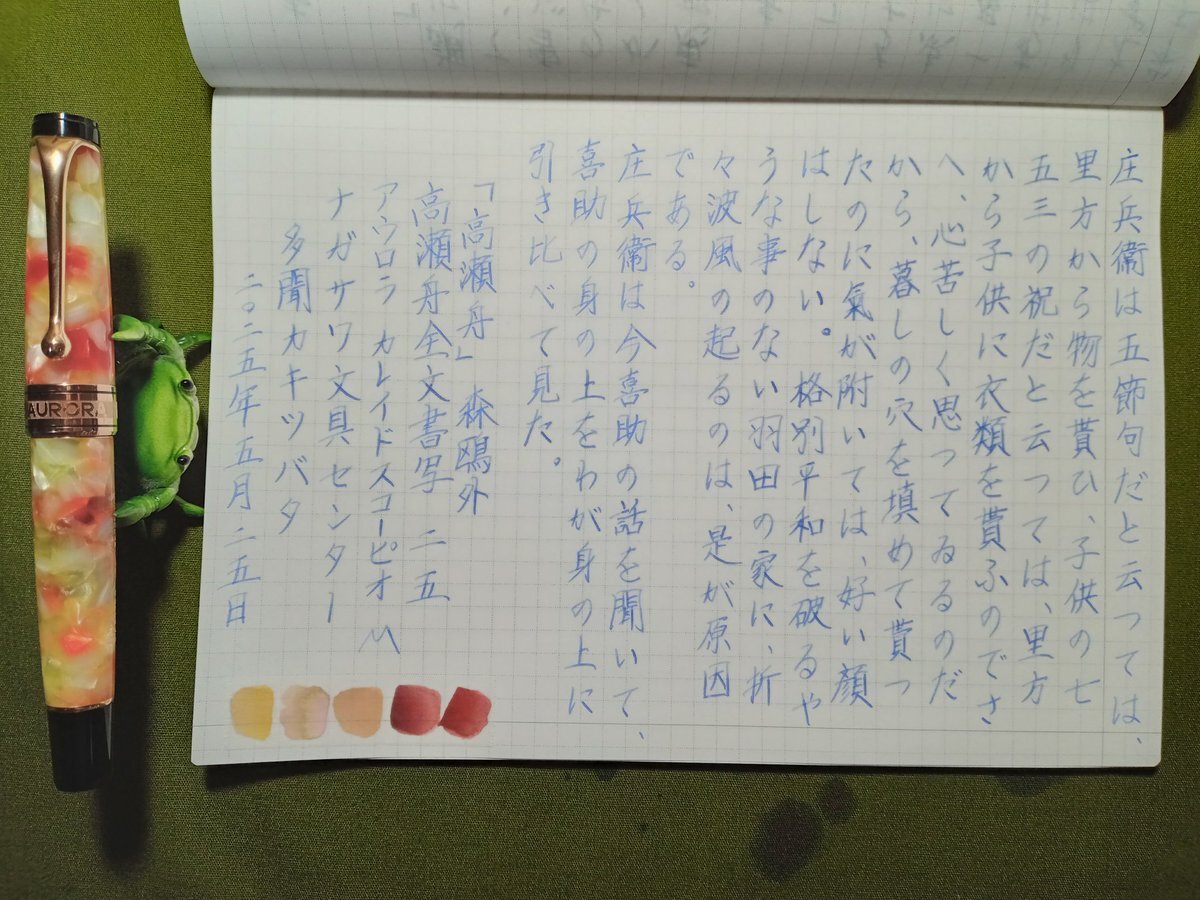 庄兵衞は五節句だと云つては、
里方から物を貰ひ、子供の七
五三の祝だと云つては、里方
から子供に衣類を貰ふのでさ
へ、心苦しく思つてゐるのだ
から、暮しの穴を填めて貰つ
たのに氣が附いては、好い顏
はしない。格別平和を破るや
うな事のない羽田の家に、折
々波風の起るのは、是が原因
である。
庄兵衞は今喜助の話を聞いて、
喜助の身の上をわが身の上に
引き比べて見た。
「高瀬舟」 森鴎外
高瀬舟全文書写 二五
アウロラ カレイドスコーピオ M
ナガサワ文具センター
多聞カキツバタ
二〇二五年五月二五日
AURORA